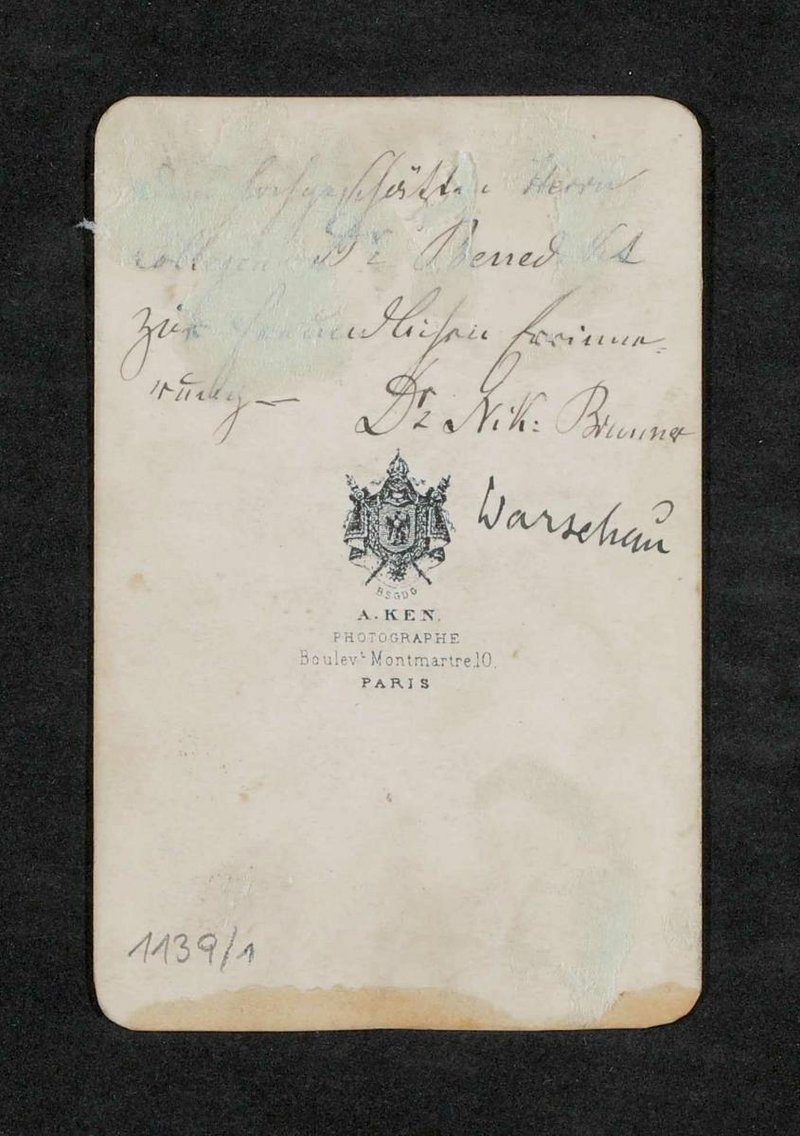 Dem hochgeschätzten Herrn
Collegen Dr Benedikt
zur freundlichen Errinne-
rung –   Dr Nik: Brunner
Warschau
BSGDG
A. KEN.
PHOTOGRAPHE
Boulevt Montmartre.10.
PARIS
1139/1